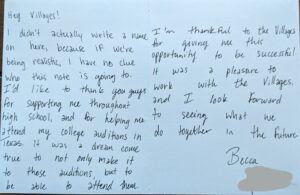 Hey Villages!
I didn't actually write a name
on here, because if we're
being realistic, I have no clue
who this note is going to.
I'd like to thank you guys
for supporting me throughout
high school, and for helping me
attend my college auditions in
Texas. It was a dream come
true to not only make it
to those auditions, but to
be able to attend them.
I'm thankful to the Villages
for giving me this
opportunity to be successful
It was a pleasure to
work with the Villages,
and I look forward
to seeing what we
do together in the future
Becca